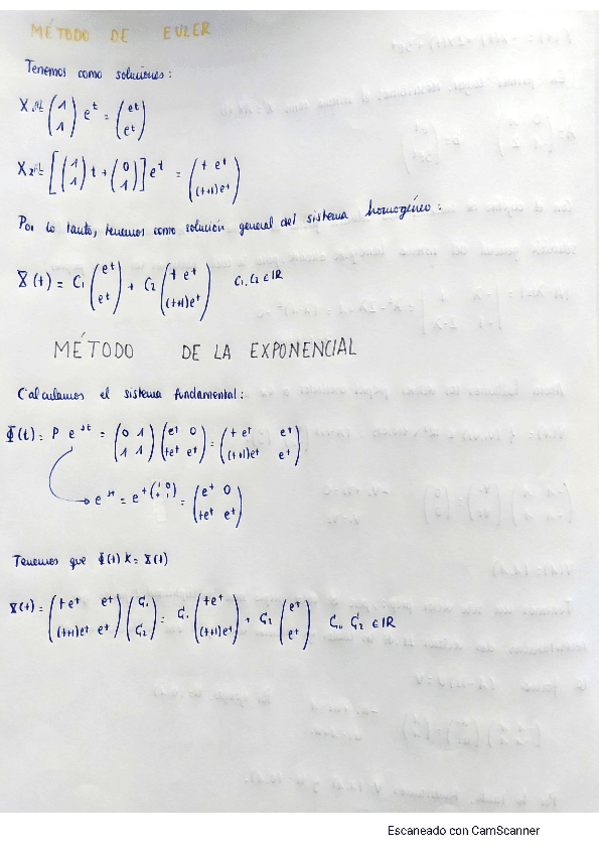 MÉTODO DE EULER
Tenemos como soluciones:
X₁(t) = (1 1) e^t = (e^t e^t)
X₂(t) = [(1 1) t + (0 1)] e^t = (t e^t (t+1)e^t)
Por lo tanto, tenemos como solución general del sistema homogéneo:
X(t) = C₁ (e^t e^t) + C₂ (t e^t (t+1)e^t) C₁, C₂ ∈ ℝ
MÉTODO DE LA EXPONENCIAL
Calculamos el sistema fundamental:
Φ(t) = P e^Jt = (0 1 1 1) (e^t 0 te^t e^t) = (t e^t e^t (t+1)e^t e^t)
e^Jt = e^t(1 0 1 1) = (e^t 0 te^t e^t)
Tenemos que Φ(t) K = X(t)
X(t) = (te^t e^t (t+1)e^t e^t) (C₁ C₂) = C₁ (te^t (t+1)e^t) + C₂ (e^t e^t) C₁, C₂ ∈ ℝ
Escaneado con CamScanner